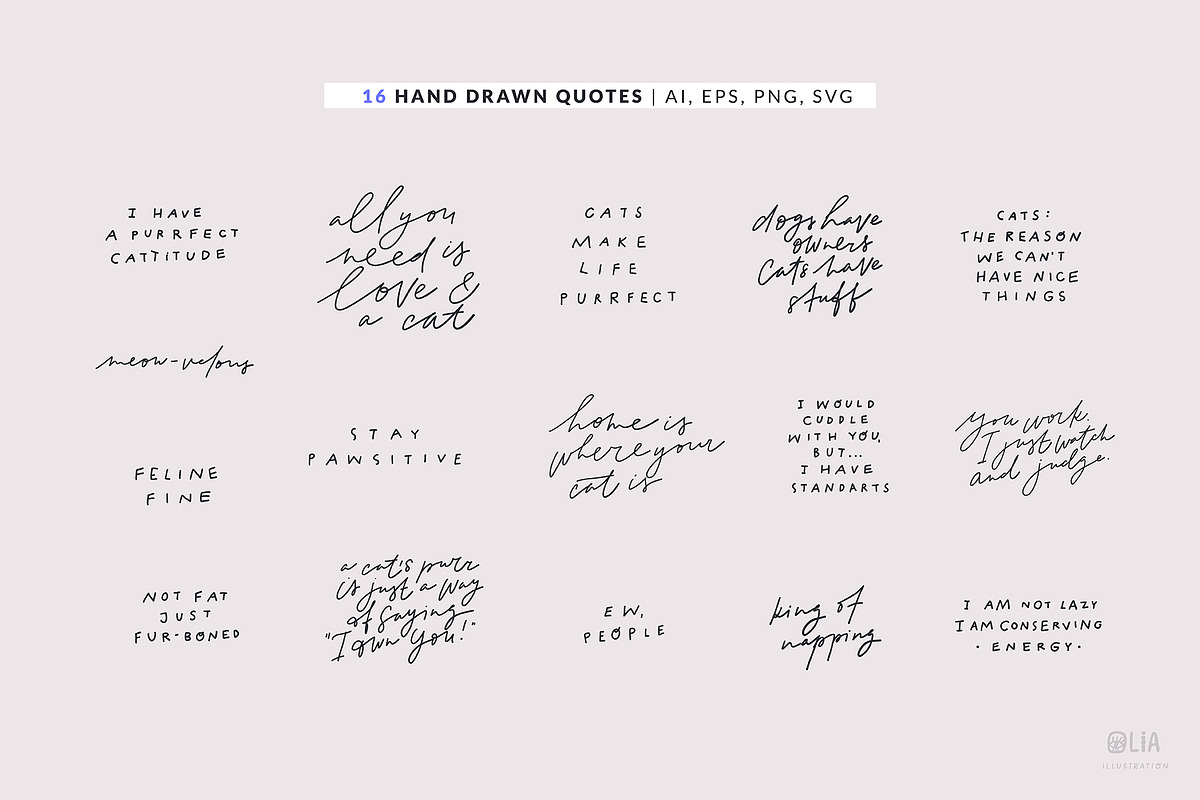 16 HAND DRAWN QUOTES | AI, EPS, PNG, SVG
I HAVE
A PURRFECT
CATTITUDE
all you
need is
love &
a cat
CATS
MAKE
LIFE
PURRFECT
dogs have
owners
Cats have
stuff
CATS:
THE REASON
WE CAN'T
HAVE NICE
THINGS
meow-velous
FELINE
FINE
STAY
PAWSITIVE
home is
where your
cat is
I WOULD
CUDDLE
WITH YOU,
BUT...
I HAVE
STANDARTS
You work.
I just watch
and judge.
NOT FAT
JUST
FUR-BONED
a cat's purr
is just a way
of saying
"I own you!"
EW,
PEOPLE
king of
napping
I AM NOT LAZY
I AM CONSERVING
· ENERGY·
OLIA
ILLUSTRATION